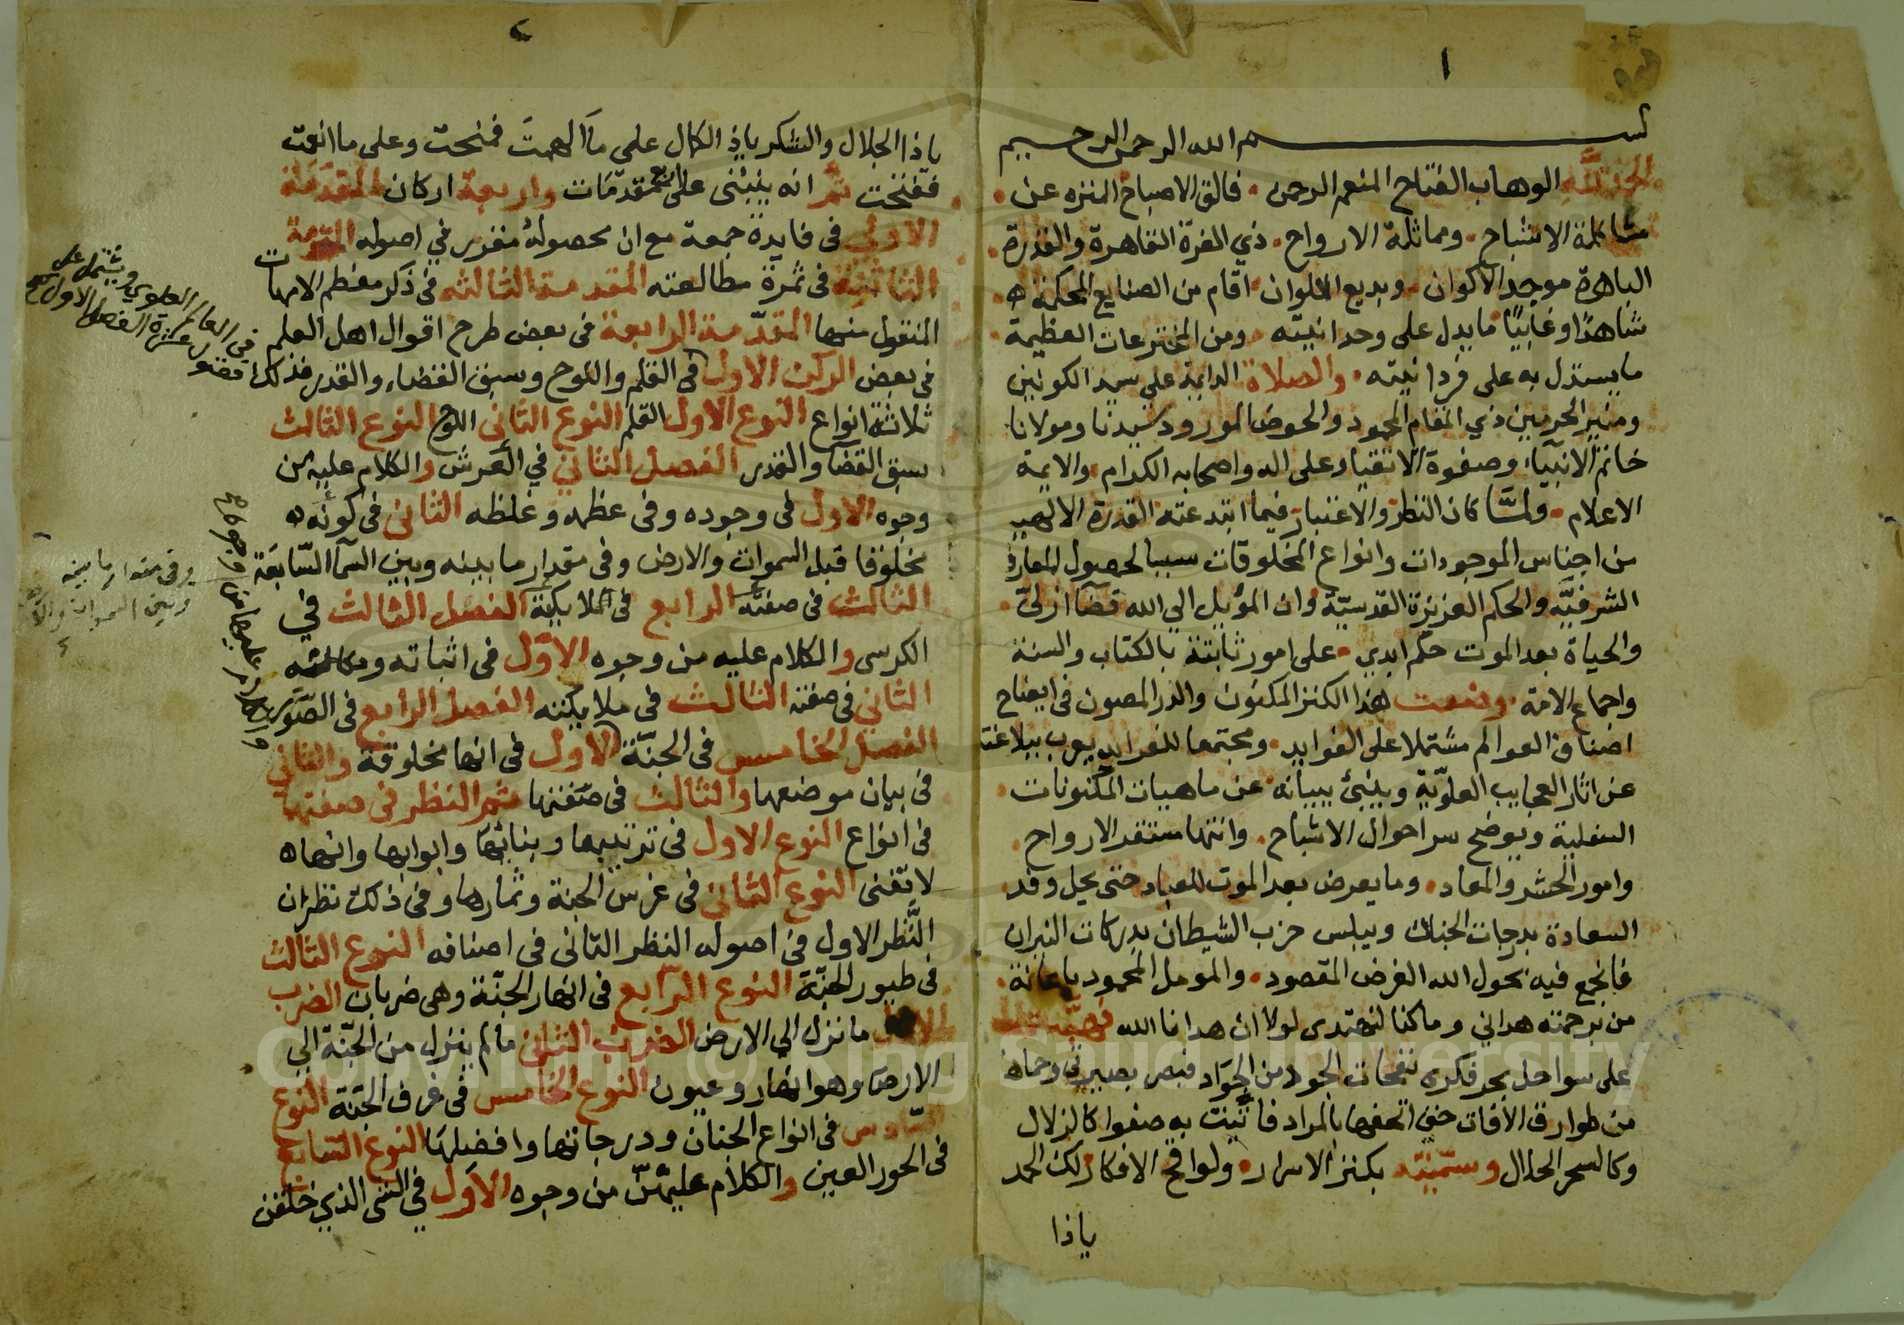 ١
بسم الله الرحمن الرحيم
الحمد لله الوهاب الفتاح المنعم الرحمن فالق الاصباح المنزه عن
مشاكلة الاشباح ومماثلة الارواح ذي العزة القاهرة والقدرة
الباهرة موجد الاكوان وبديع الالوان اقام من الصنايع المحكمة
شاهدا وغايبا ما يدل على وحدانيته ومن المخترعات العظيمة
ما يستدل به على فردانيته والصلاة الدايمة على سيد الكونين
ومنير الحرمين ذي المقام المحمود والحوض المورود سيدنا ومولانا
خاتم الانبياء وصفوة الاتقياء وعلى اله واصحابه الكرام والايمة
الاعلام ولما كان النظر والاعتبار فيما ابتدعته القدرة الالهية
من اجناس الموجودات وانواع المخلوقات سببا لحصول المعارف
الشرفيه والحكم العزيزة القدسية وان المؤيل الى الله قضآ ازلي
والحياة بعد الموت حكم ابدي على امور ثابتة بالكتاب والسنة
واجماع الامة وضعت هذا الكنز المكنون والدر المصون في ايضاح
اصناف العوالم مشتملا على الفوايد ومجتمعا للفرايد يعرب ببلاغته
عن اثار العجايب العلوية وينبئ ببيانه عن ماهيات المكنونات
السفلية ويوضح سر احوال الاشباح وانتها مستقر الارواح
وامور الحشر والمعاد وما يعرض بعد الموت للعباد حتى يحل وفد
السعادة بدرجات الجنان ويبلس حزب الشيطان بدركات النيران
فانجمع فيه بحول الله الغرض المقصود والمومل المحمود باعانة
من برحمته هداني وما كنا لنهتدى لولا ان هدانا الله فهبت
على سواحل بحر فكري نفحات الجود من الجواد فبصر بصيرتي وحماه
من طوارق الافات حتى اتحفها بالمراد فاتيت به صفوا كالزلال
وكالسحر الحلال وسميته بكنز الاسرار ولواقح الافكار لك الحمد
ياذا
٢
ياذا الجلال والشكر ياذ الكمال على ما الهمت فمنحت وعلى ما انعمت
ففتحت ثم انه ينبنى على اربع مقدمات واربعة اركان المقدمة
الاولى في فايدة جمعة مع ان محصوله مقرر في اصوله المقدمة
الثانية في ثمرة مطالعته المقدمة الثالثه في ذكر معظم الامهات
المنقول منها المقدمة الرابعة في بعض طرح اقوال اهل العلم
في بعض الركن الاول في القلم واللوح وسبق القضاء والقدر فذلك
ثلاثة انواع النوع الاول القلم النوع الثاني اللوح النوع الثالث
سبق القضآ والقدر الفصل الثاني في العرش والكلام عليه من
وجوه الاول في وجوده وفى عظمه وغلظه الثاني في كونه
مخلوقا قبل السموات والارض وفي مقدار ما بينه وبين السمآ السابعة
الثالث في صفته الرابع في الملايكة الفصل الثالث في
الكرسى والكلام عليه من وجوه الاول في اثباته ومكانته
الثاني في صفته الثالث في ملايكته الفصل الرابع في الصور
الفصل الخامس في الجنة الاول في انها مخلوقة والثاني
في بيان موضعها والثالث في صفتها ثم النظر في صفتها
في انواع النوع الاول في ترتيبها وبنائها وابوابها وانها
لا تفنى النوع الثاني في غرس الجنة وثمارها وفي ذلك نظران
النظر الاول في اصوله النظر الثاني في اصنافه النوع الثالث
في طيور الجنة النوع الرابع في انهار الجنة وهى ضربان الضرب
الاول ما نزل الى الارض الضرب الثاني ما لم ينزل من الجنة الى
الارض وهو انهار وعيون النوع الخامس في غرف الجنة النوع
السادس في انواع الجنان ودرجاتها وافضلها النوع السابع
في الحور العين والكلام عليهن من وجوه الاول في الشى الذي خلقن
في العالم العلوي ويشتمل على
فصول عشرة الفصل الاول
وفي مقدار ما بينه
وبين السموات